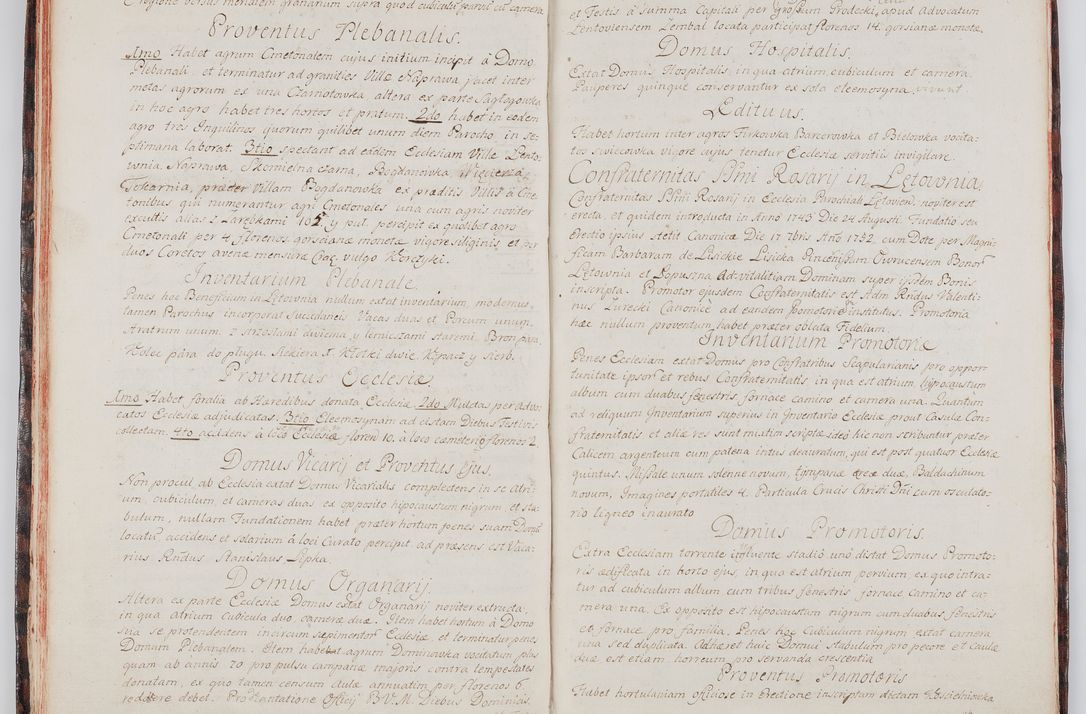 e regione versus meridiem granarium supra quod cubiculi parvi cum camera
Proventus Plebanalis.
1mo Habet agrum Cmetonalem cujus initium incipit à Domo
Plebanali, et terminatur ad granities Villæ Naprawa jacet inter
metas agrorum ex una Czarnotowka altera ex parte
in hoc agro habet tres hortos et pratum. 2do habet in eodem
agro tres Inquilinos quorum quilibet unum diem Parocho in se-
ptimana laborat. 3tio spectant ad eadem Ecclesiam Villæ Lento-
wnia, Naprawa, Skomielna czarna, Bogdanowka, Więcierza
Tokarnia, præter Villam Bogdanowka ex præditis Villis à Cme-
tonibus qui numerantur agri Cmetonales una cum agris noviter
excultis alias z Zarębkami 105 y puł percipit ex quolibet agro
Cmetonali per 4 florenos gorsciana monetæ vigore siliginis, et per
duos Coretos avenæ mensuræ Crac: vulgo Korczyki.
Inventarium Plebanale.
Penes hoc Beneficium in Lętownia nullum extat inventarium, modernus
tamen Parochus incorporat Succidaneis Vacas duas et Porcum unum.
Aratrum unum. z żrzosłami dwiema y lemieszami staremi. Bron para.
Kolec para do pługu. Siekiera 1. Kłotki dwie. Kopacz y sierb.
Proventus Ecclesiæ
1mo Habet foralia ab Hæredibus donata Ecclesiæ 2do Mulctas per Advo-
catos Eclesiæ adjudicatas. 3tio Eleemosynam ad elsam Diebus Festivis
collectam. 4to accidens à loco Ecclesiæ floren 10. à loco cæmeterij florenos 2.
Domus Vicarij et Proventus Ejus.
Non procul ab Ecclesia extat Domus Vicarialis complectens in se atri-
um cubiculum, et cameras duas ex opposito hipocaustum nigrum et sta-
bulum, nullam Fundationem habet præter hortum penes suam Domũ
locatũ accidens et solarium à loci Curato percipit. ad præsens est Vica-
rius Rndus Stanislaus Lipka.
Domus Organarij.
Altera ex parte Ecclesiæ Domus extat Organarij noviter extructa,
in qua atrium cubicula duo cameræ duæ. Item habet hortum à Domo
sua se protendentem in circum sæpimentor Ecclesiæ et terminatur penes
Domum Plebanalem. Item habet agrum Dominowka vocitatum plus
quam ab annis 70 pro pulsu campanæ majoris contra tempestates
donatam, ex quo tamen censum Aulæ annuatim per florenos 6.
reddere debet. Pro Cantatione Officij B.V.M. Diebus Dominicis,
et Festis à Summa Capitali per Grosum Grodecki, apud Advocatum
Lentoviensem Zembal locata participat florenos 14. gorsianæ monetæ.
Domus Hospitalis.
Extat Domus Hospitalis, in qua atrium, cubiculum et camera.
Pauperes quinque conservantur ex sola eleemosyna vivunt.
Edituus.
Habet hortum inter agros Firkowka Barcerowka et Bielowka vocita-
tos Swiecowka vigore cujus tenetur Ecclesiæ servitii invigilare.
Confraternitas SSmi Rosarij in Lętownia
Confraternitas SSmi Rosarij in Ecclesia Parochiali Lętovien. noviter est
erecta, et quidem introducta in Anno 1743 Die 24 Augusti. Fundatio seu
Erectio ipsius stetit Canonicè Die 17 7bris Anõ 1752. cum Dote per Magni-
ficam Barbaram de Lisickie Lisicka Pincernam Owrucensem Bonor
Lętownia et Łopuszna Ad-vitalitiam Dominam super ijsdem Bonis
inscripta. Promotor ejusdem Confraternitatis est Adm Rndus Valenti-
nus Żurecki Canonicè ad eandem Promotoriã institutus. Promotoria
hæc nullum proventum habet præter oblata Fidelium.
Inventarium Promotoriæ
Penes Ecclesiam extat Domus pro Confratribus Scapularianis pro oppor-
tunitate ipsor et rebus Confraternitatis, in qua est atrium, hypocaustum
album cum duabus fenestris, fornace camino et camera una. Quantum
ad reliquum Inventarium superius in Inventario Ecclesiæ prout Casulæ Con-
fraternitatis et aliæ res sunt mixtim scriptæ ideo hic non scribuntur præter
Calicem argenteum cum patena intus deauratum, qui est post quatuor Ecclesiæ
quintus. Missale unum solenne novum, tympanæ æreæ duæ, Baldachinum
novum, Imagines portatiles 4. Particula Crucis Christi Dni cum osculato-
rio ligneo inaurato
Domus Promotoris.
Extra Ecclesiam torrente influente stadiô unô distat Domus Promoto-
ris ædificata in horto ejus, in qua est atrium pervium ex quo intra-
tur ad cubiculum album cum tribus fenestris fornace camino et ca-
mera una. Ex opposito est hipocaustum nigrum cum duabus fenestris
et fornace pro familia. Penes hoc Cubiculum nigrum extat camera
una sed duplicata. Adhæret huic Domui stabulum pro pecore et caulæ
duæ est etiam horreum pro servanda crescentia
Proventus Promotoris
Habet hortulaniam officiose in Erectione inscriptam dictam Koscielniowka